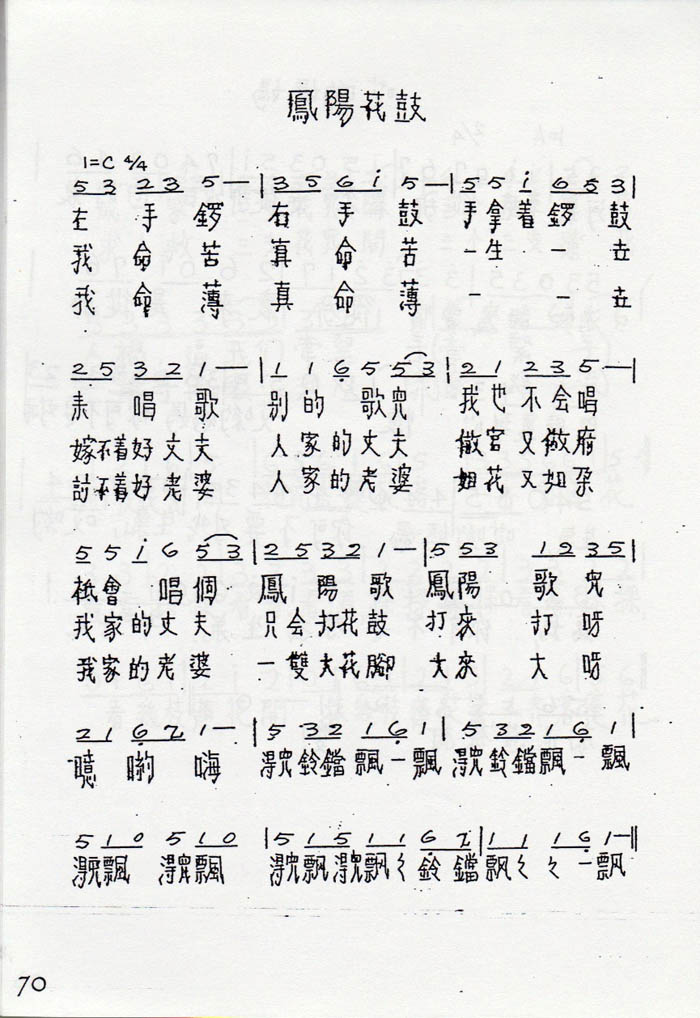 鳳陽花鼓
1=C 4/4
5 3 2 3 5 — | 3 5 6 i 5 — | 5 5 i 6 5 3 |
左手鑼 右手鼓 手拿着鑼鼓
我命苦 真命苦 一生一
我命薄 真命薄 一一
2 5 3 2 1 — | 1 1 6 5 5 3 | 2 1 2 3 5 — |
来唱歌 别的歌兒 我也不会唱
嫁不着好丈夫 人家的丈夫 做官又做府
討不着好老婆 人家的老婆 如花又如朵
5 5 i 6 5 3 | 2 5 3 2 1 — | 5 5 3 1 2 3 5 |
祗會唱個 鳳陽歌 鳳陽歌兒
我家的丈夫 只会打花鼓 打來打呀
我家的老婆 一雙大花腳 大來大呀
2 1 6 2 1 — | 5 3 2 1 6 1 | 5 3 2 1 6 1 |
噫喲嗨 得兒鈴鐺飄一飄 得兒鈴鐺飄一飄
5 1 0 5 1 0 | 5 1 5 1 1 6 2 | 1 1 1 6 1 — ||
得兒飄 得兒飄 得兒飘得兒飘々鈴鐺 飘々々一飘
70